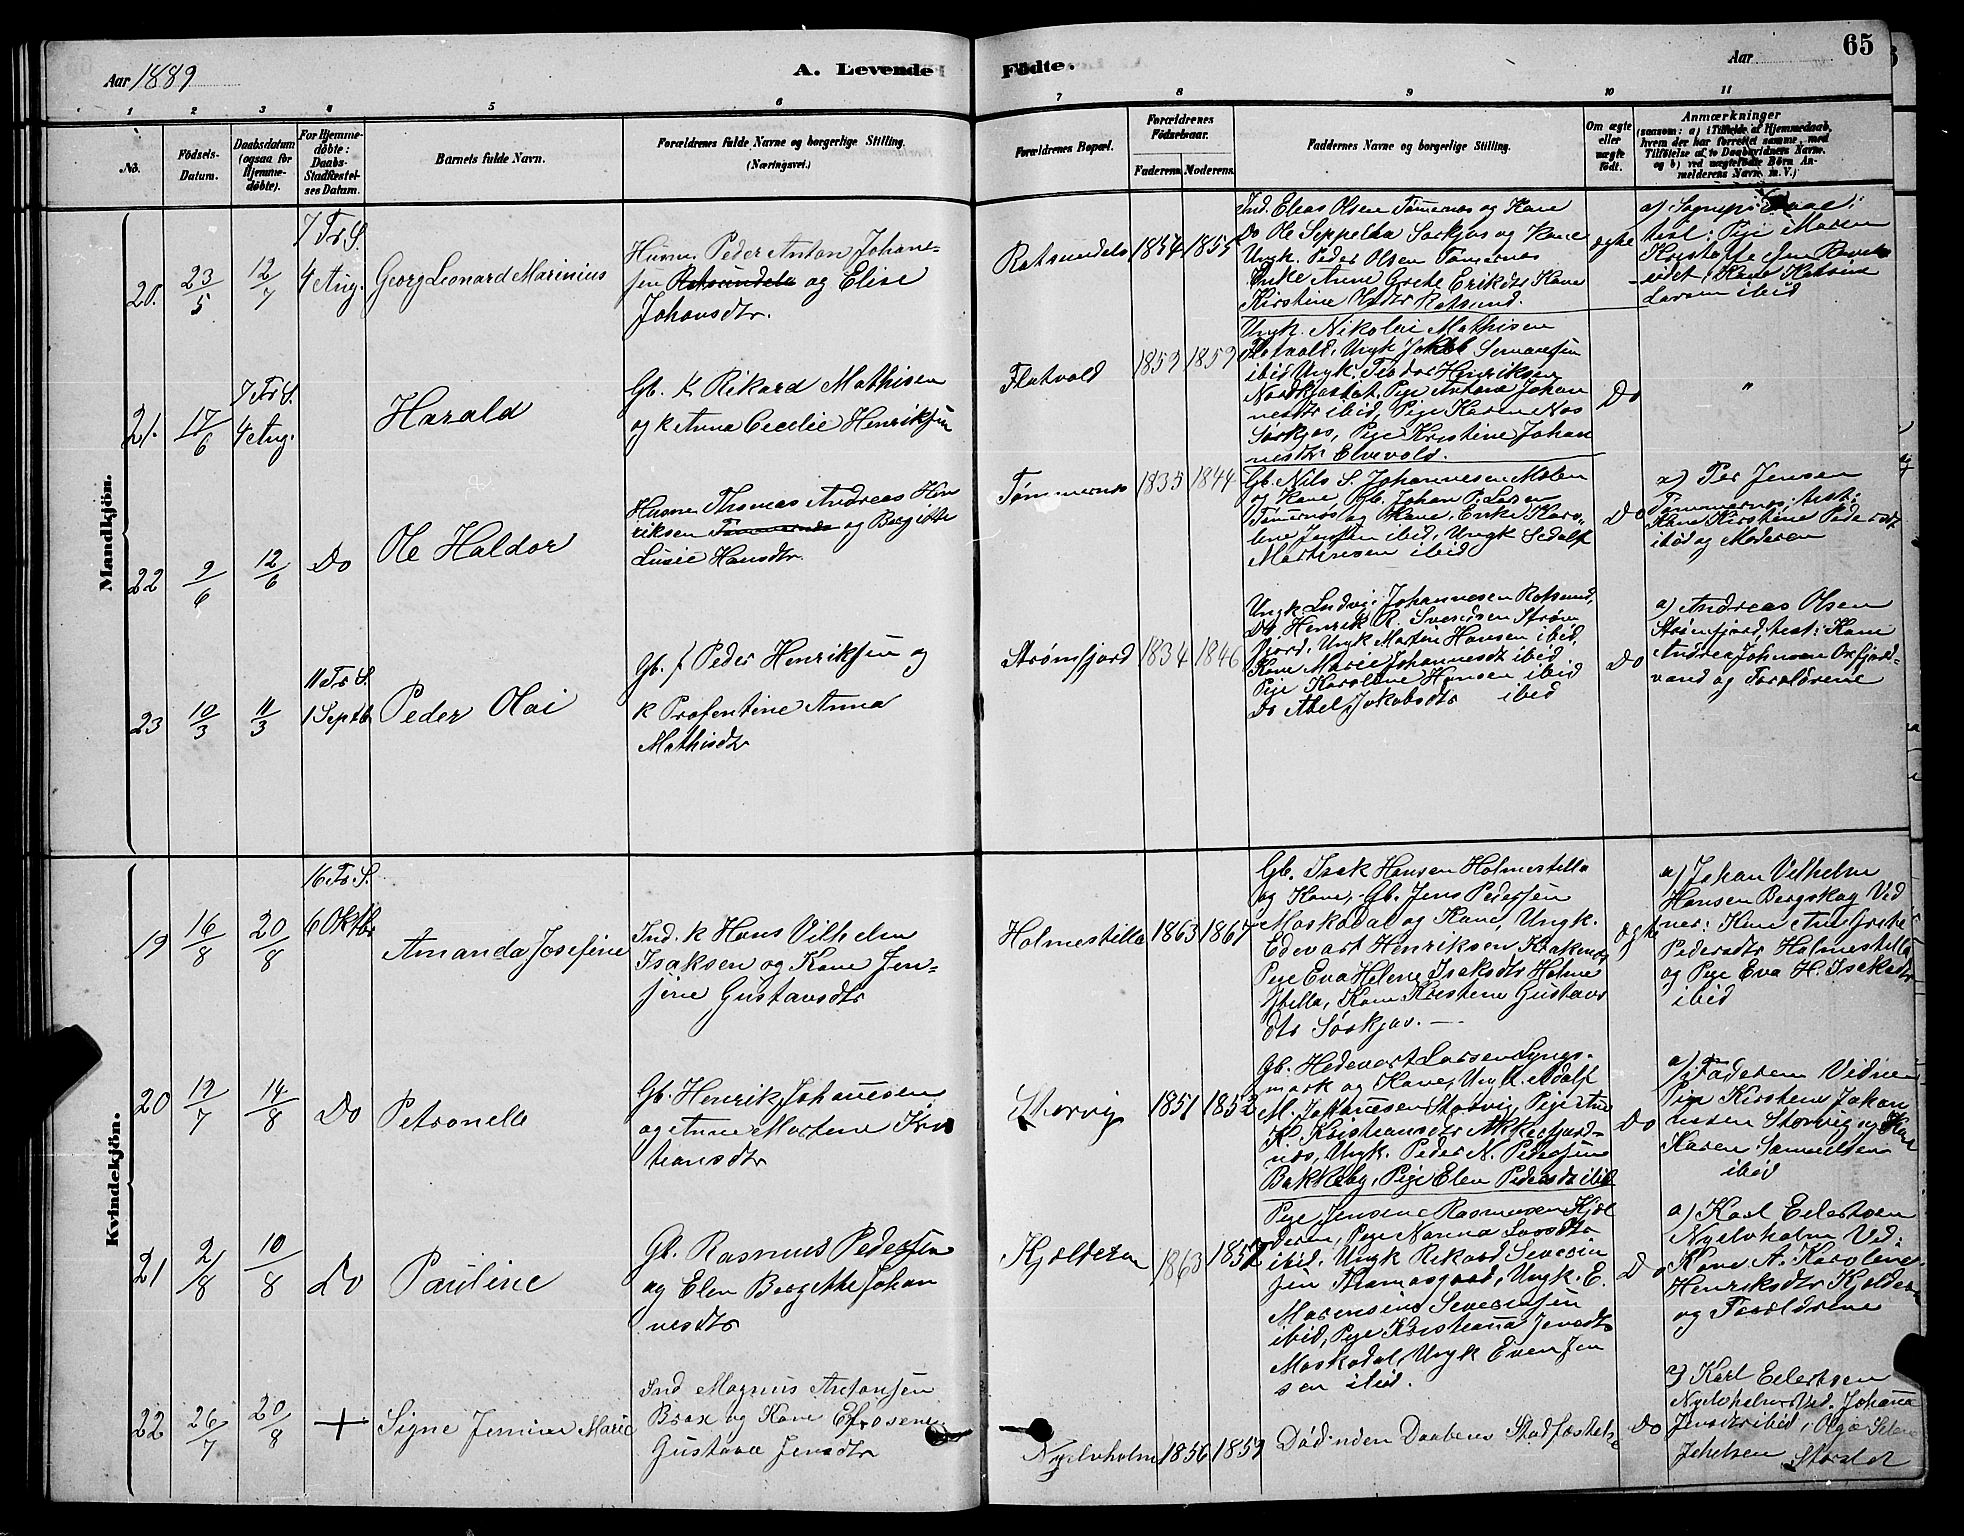 Aar 1889
A. Levende
Fødte.
Aar
65
1 2 3 4 5 6 7 8 9 10 11
No.
Fødsels-
Datum.
Daabsdatum
(ogsaa for
Hjemme-
døbte).
For Hjemme-
døbte:
Daabs-
Stadfæstel-
ses Datum.
Barnets fulde Navn.
Forældrenes fulde Navne og borgerlige Stilling.
(Næringsvei.)
Forældrenes Bopæl.
Forældrenes
Fødselsaar.
Faderens Moderens
Faddernes Navne og borgerlige Stilling.
Om ægte
eller
uægte
født.
Anmærkninger
(saasom: a) i Tilfælde af Hjemmedaab,
hvem der har forrettet samme, med
Tilføielse af to Daabsvidners Navne.
og b) ved uægtefødte Børn An-
melderens Navn m. V.)
Mandkjön.
20.
23/5
12/7
7 Tr S.
4 Aug.
Georg Leonard Marinius
Husm. Peder Anton Johane-
sen Rotsundelv og Elise
Johansdtr.
Rotsundelv
1854
1855
Ind. Elias Olsen Tømernes og Kone
Do Ole Seppelæ Sørkjos og Kone
Ungk. Peder Olsen Tømernes
Enke Anne Grete Eriksdtr Kone
Kirstine Olsdtr Rotsund.
ægte
test: Pige Maren
Kristoffersen
Kone Katrine
Larsen ibid
21.
17/6
7 Tr S.
4 Aug.
Harald
Gb. k Rikard Mathisen
og k Anna Cecelie Henriksen
Flatvold
1859
1859
Ungk. Nikolai Mathisen
Flatvold, Ungk Jakob Servaresen
ibid Ungk. Teodor Henriksen
Nordkjosbot, Pige Antone Johan
nesdtr ibid, Pige Karen Nos
Sørkjos, Pige Kristine Johan
nesdtr Elvevold.
Do
"
22
9/6
12/6
Do
Ole Haldor
Husm. Thomas Andreas Hen
riksen Tømmernes og Bergitte
Lusie Hansdtr.
Tømmernes
1835
1844
Gb. Nils S. Johannesen Molen
og Kone, Gb. Johan P. Larsen
Tømernes og Kone, Enke Karo-
line Jensen ibid, Ungk Sedolf
Martinsen ibid
Do
a) Per Jensen
Tømmernes, test:
Kone Kirstine Pedersdtr
ibid og Moderen
23
10/3
11/3
11 Tr S.
1 Septb.
Peder Olai
Gb. f Peder Henriksen og
k Profentine Anna
Mathisdtr
Strømfjord
1834
1846
Ungk Ludvig Johannesen Rotsund,
Do Henrik R. Sversdsen Strøm
fjord, Ungk Morten Hansen ibid,
Kone Marie Johannesdt ibid
Pige Karoline Hansen ibid
Do Abel Jakobsdtr ibid
Do
a) Andreas Olsen
Strømfjord, test: Kone
Andrea Johnsen Oxfjord-
vand og Forældrene
Kvindekjön.
19
16/8
20/8
16 Tr S.
6 Oktbr
Amanda Josefine
Ind. k Hans Vilhelm
Isaksen og Kone Jen-
sine Gustavsdtr
Holmestilla
1863
1867
Gb. Isak Hansen Holmestilla
og Kone, Gb. Jens Pedersen
Moskodal og Kone, Ungk.
Edevart Henriksen Krakenes
Pige Eva Helene Isaksdtr Holme
stilla, Kone Kristene Gustavs
dtr Sørkjos. —
ægte
a) Johan Vilhelm
Hansen Bergskog Vid
ner: Kone Ane Grete
Pedersdtr Holmestilla
og Pige Eva H. Isaksdtr
ibid
20
12/7
14/8
Do
Petronelle
Gb. Henrik Johannesen
og Anne Martene Kris
tiansdtr
Storvig
1851
1852
Gb. Hedevart Larsen Lyngs-
mark og Kone, Ungk. Adolf
M. Johannesen Storvig, Pige Ane
K. Kristiansdtr Akkerfjord-
nes, Ungk. Peder N. Pedersen
Bakkeby, Pige Elen Pedersdtr ibid
Do
a) Faderen Vidner
Pige Kirsten Johan
nesen Storvig og Kone
Karen Samuelsen
ibid
21
2/8
10/8
Do
Pauline
Gb. Rasmus Pedersen
og Elen Bergitte Johan
nesdtr
Kjelderen
1863
1852
Pige Jensine Rasmussen Kjel
deren, Pige Nanna Larsdtr
ibid, Ungk Rikard Severin
sen Thomasgaard, Ungk. E.
Marensius Severinsen
ibid, Pige Kristianna Jensdtr
Moskodal, Ungk Even Jen
sen ibid.
Do
a) Karl Eilertsen
Nyelvholm Vid:
Kone A. Karoline
Henriksdtr Kjelderen
og Forældrene
22
26/7
20/8
+
Signe Jemine Marie
Ind. Magnus Antonsen
Brox og Kone Efrosene
Gustava Jensdtr
Nyelvholm
1856
1859
Død inden Daabens Stadfæstelse
Do
a) Karl Eilertsen
Nyelvholm Vid. Johanna
Jensdtr ibid, Olga Selma
Storslet